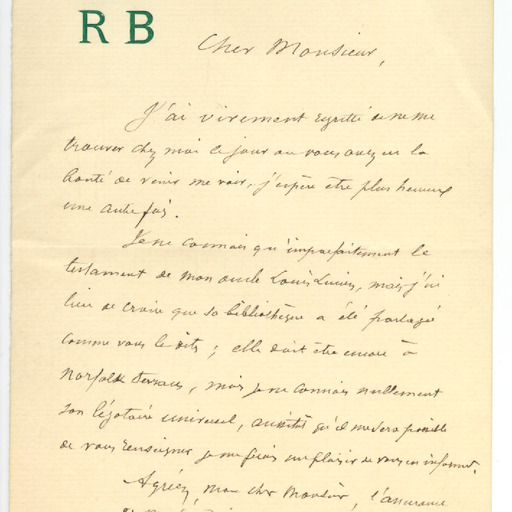 R B
Cher Monsieur,
J'ai vivement regretté de ne me
trouver chez moi le jour où vous avez eu la
bonté de venir me voir, j'espère être plus heureux
une autre fois.
Je ne connais qu'imparfaitement le
testament de mon oncle Louis Lucien, mais j'ai
lieu de croire que sa bibliothèque a été partagé
comme vous le dites ; elle doit être encore à
Norfolk Terrace, mais je ne connais nullement
son légataire universel, aussitôt qu'il me sera possible
de vous renseigner je me ferai un plaisir de vous en informer.
Agréez, mon cher Monsieur, l'assurance